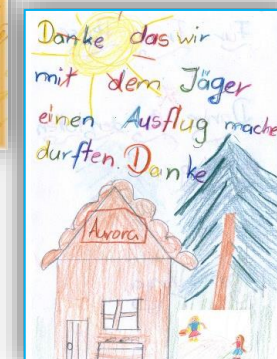 Danke das wir
mit dem Jäger
einen Ausflug mache
durften. Danke
Aurora